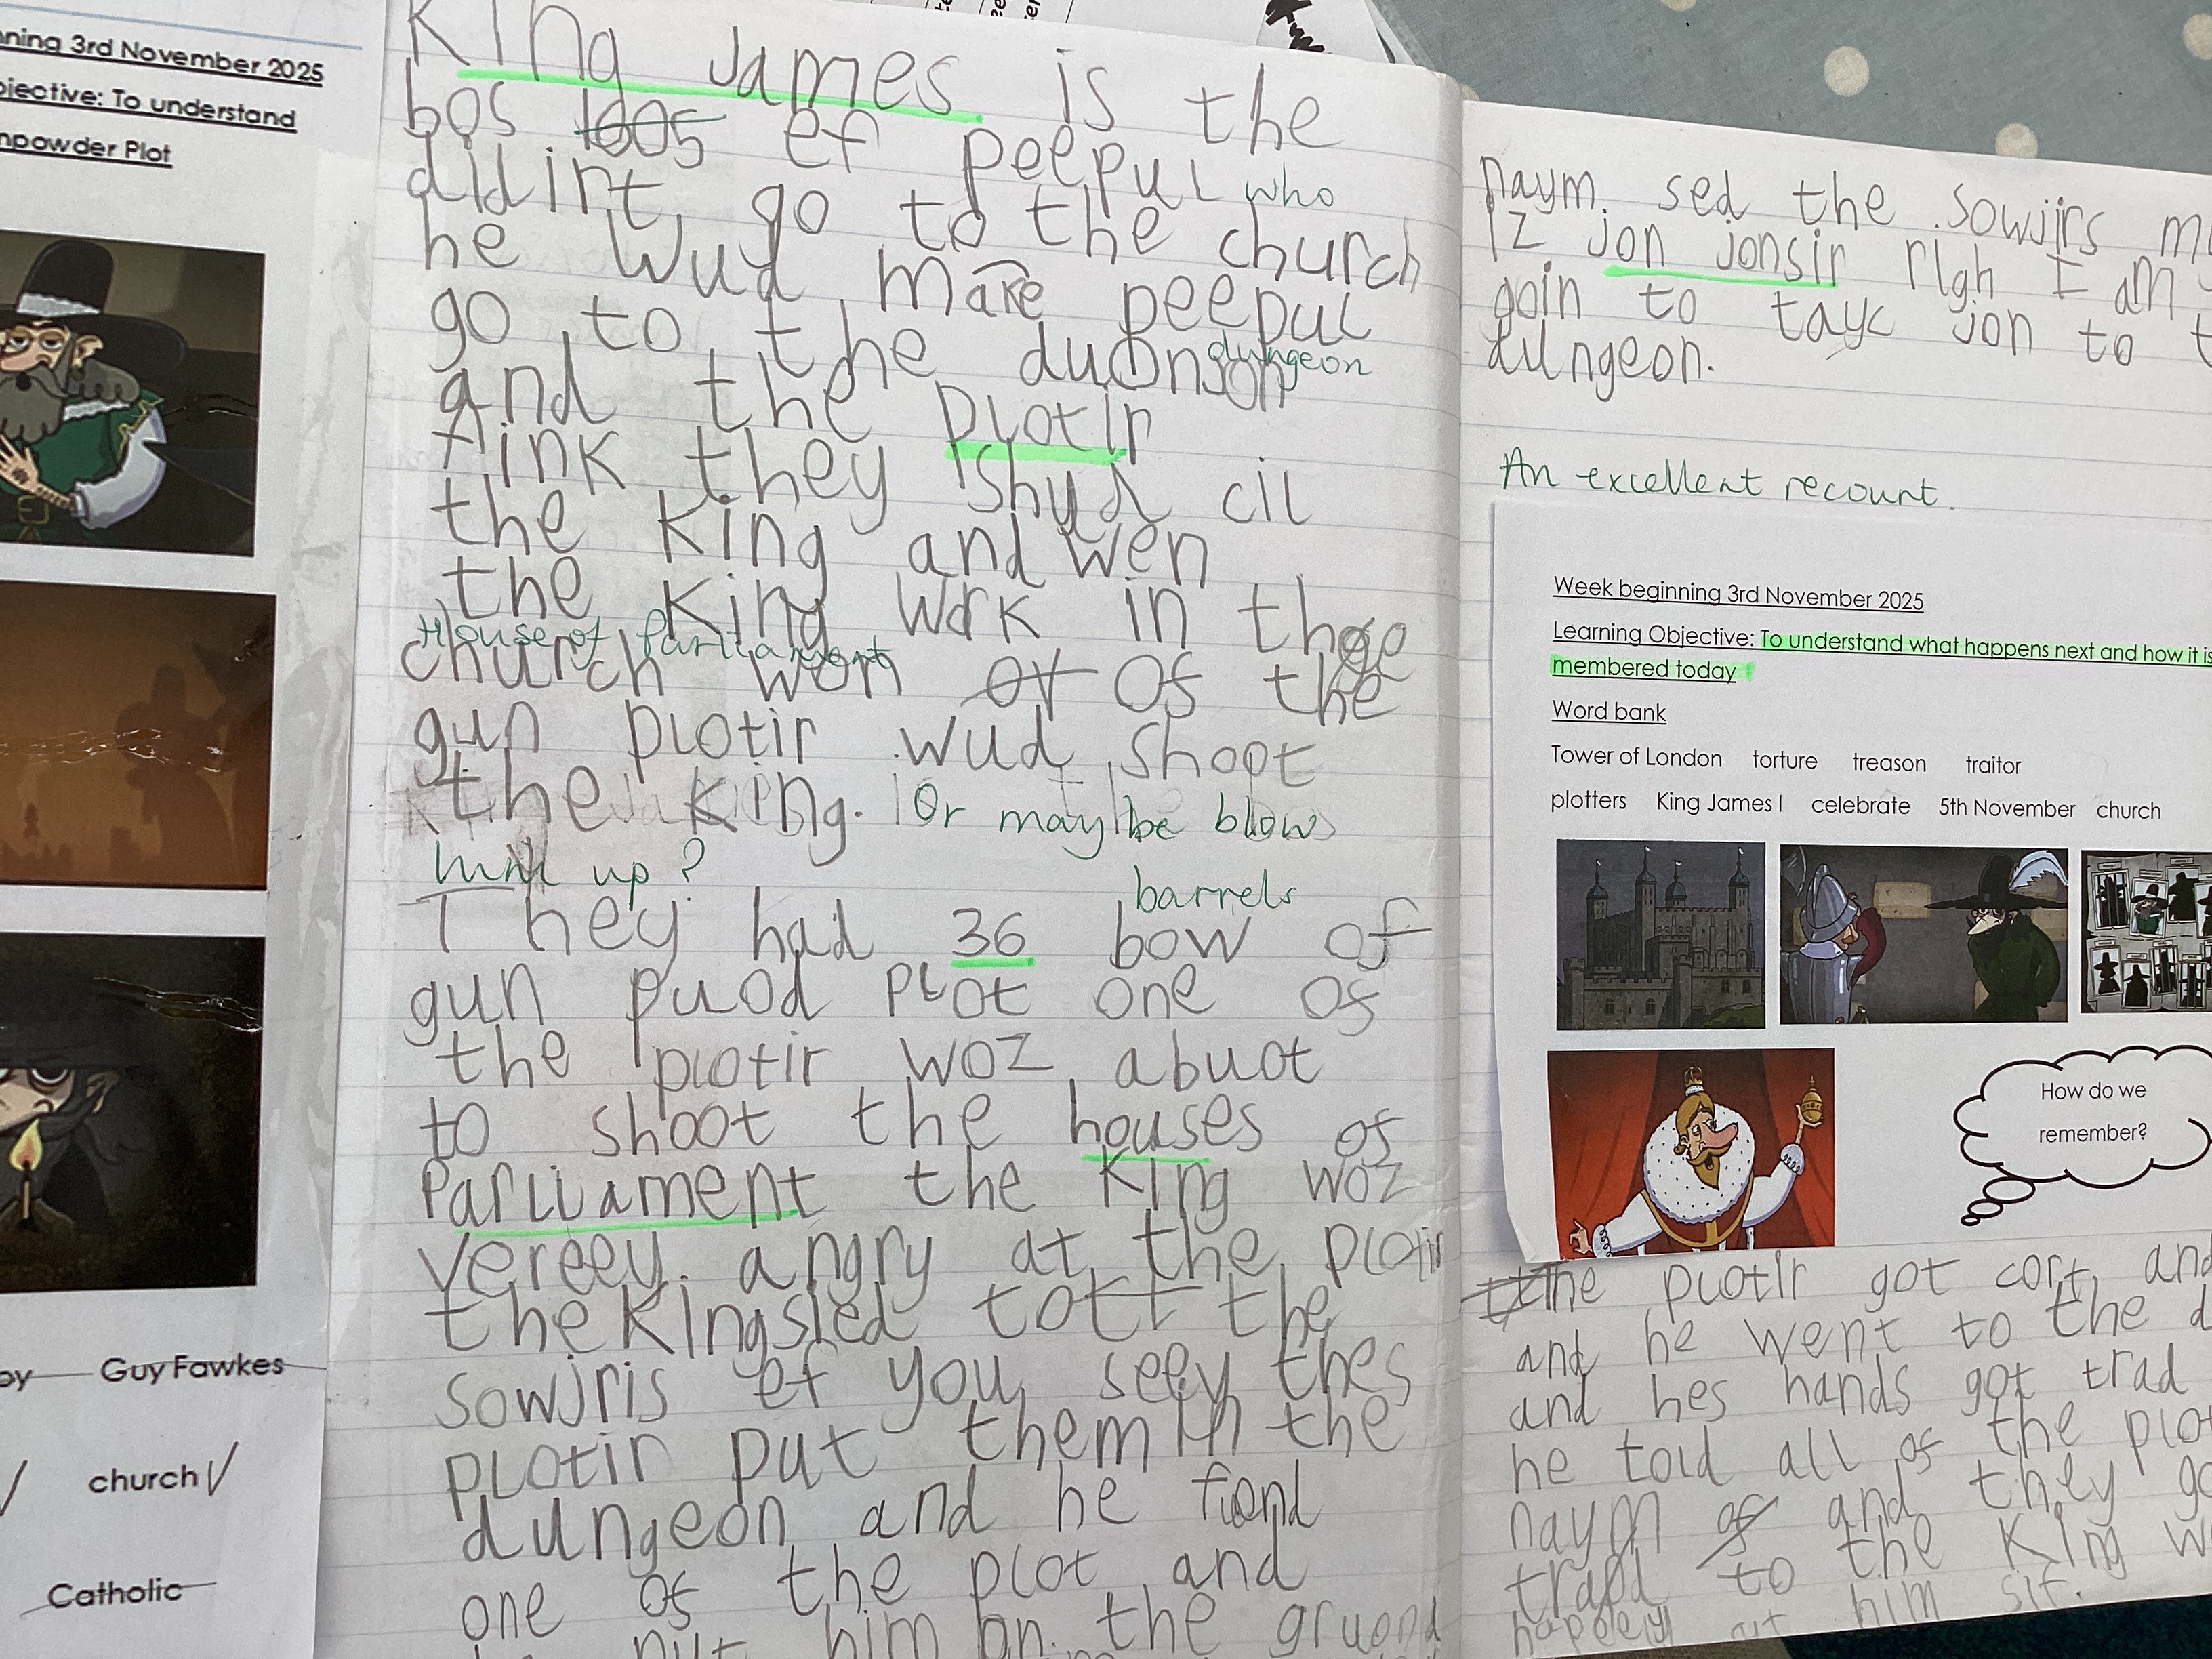 nning 3rd November 2025
bjective: To understand
npowder Plot
Guy Fawkes
church
Catholic
King James is the
bos 1605 ef peepul who
didint go to the church
he wud make peepul
go to the dungeon
and the plotir
fink they shud cil
the King and wen
the King work in the
House of Parliament
church won of the
gun plotir wud shoot
the King. Or maybe blow
him up?
barrels
They had 36 bow of
gun puod plot one of
the plotir woz abuot
to shoot the houses of
Parliament the King woz
vereey angry at the plotir
the King sed tott the
sowjris ef you seey thes
plotir put them in the
dungeon and he fond
one of the plot and
put him on the gruond
naym. sed the sowjirs
iz jon jonsir righ I am
goin to tayc jon to
dungeon.
An excellent recount.
Week beginning 3rd November 2025
Learning Objective: To understand what happens next and how it is
membered today
Word bank
Tower of London torture treason traitor
plotters King James I celebrate 5th November church
How do we
remember?
the plotir got cort and
and he went to the
and hes hands got trad
he told all of the
naym of and they
to the King
him sit.